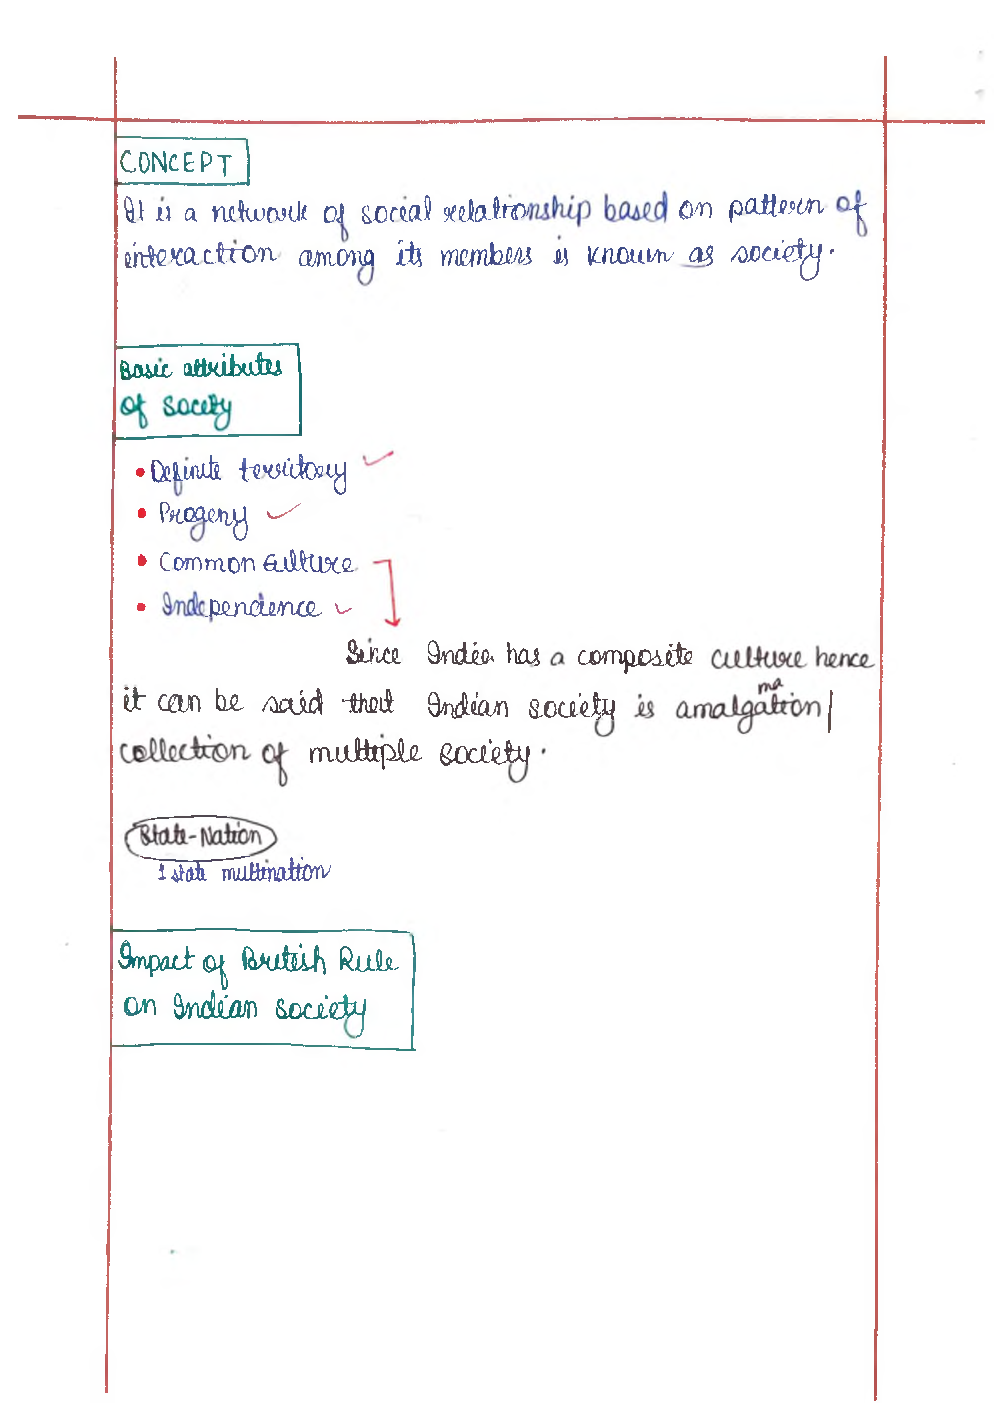 CONCEPT
It is a network of social relationship based on pattern of
interaction among its members is known as society.
Basic attributes
of Socety
• Definite territory
• Progeny
• Common culture
• Independence
Since India has a composite culture hence
it can be said that Indian society is amalgamation/
collection of multiple society.
State-Nation
1 state multination
Impact of British Rule
on Indian society